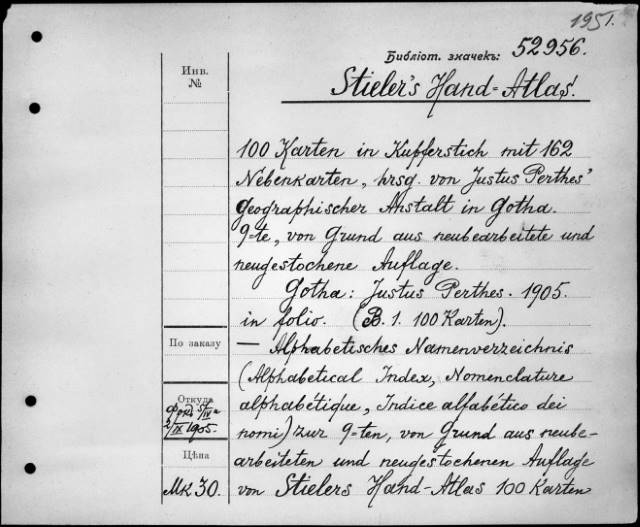 1951.
Библіот. значекъ: 52956.
Инв.
№
Stieler's Hand-Atlas.
100 Karten in Kupferstich mit 162
Nebenkarten, hrsg. von Justus Perthes'
geographischer Anstalt in Gotha.
9-te, von Grund aus neubearbeitete und
neugestochene Auflage.
Gotha: Justus Perthes. 1905.
in folio. (B. 1. 100 Karten).
По заказу
— Alphabetisches Namenverzeichnis
(Alphabetical Index, Nomenclature
Откуда
alphabétique, Indice alfabético dei
2/IX 1905.
nomi) zur 9-ten, von Grund aus neube-
Цѣна
arbeiteten und neugestochenen Auflage
Мк 30.
von Stielers Hand-Atlas 100 Karten